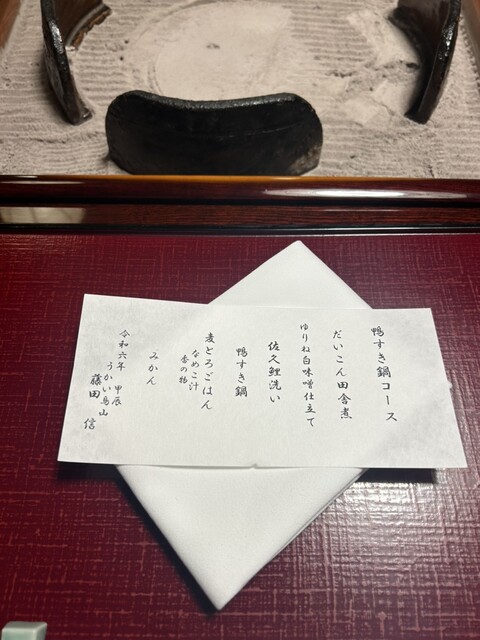 鴨すき鍋コース
だいこん田舎煮
ゆりね白味噌仕立て
佐久鯉洗い
鴨すき鍋
麦とろごはん
なめこ汁
香の物
みかん
令和六年 甲辰
うかい鳥山
藤田 信